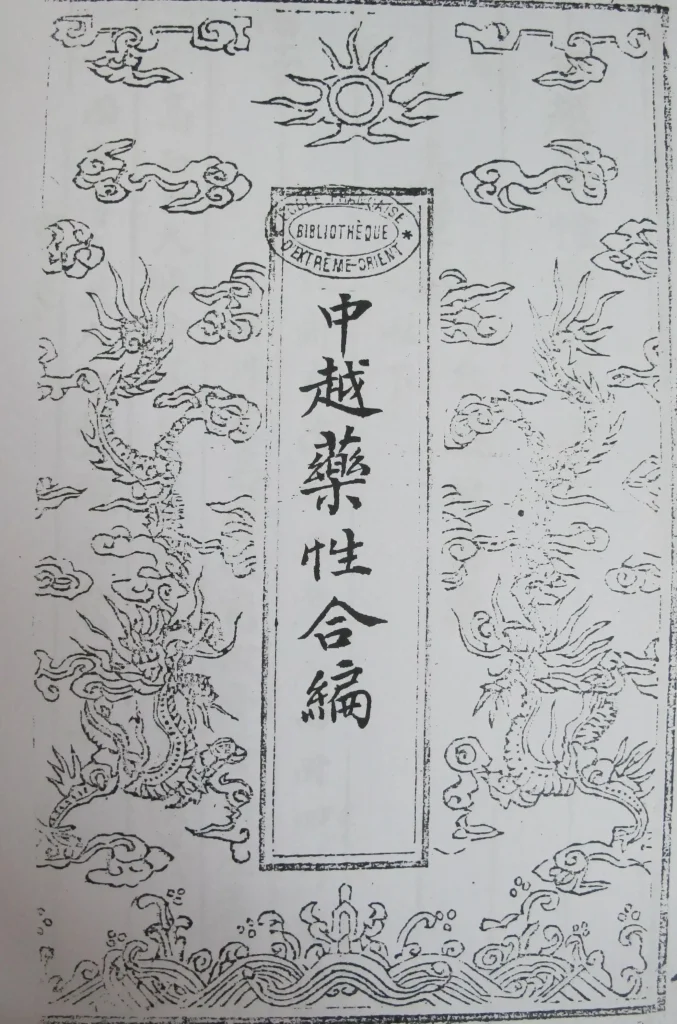 ÉCOLE FRANÇAISE
BIBLIOTHÈQUE
D'EXTRÊME-ORIENT *
中越藥性合編